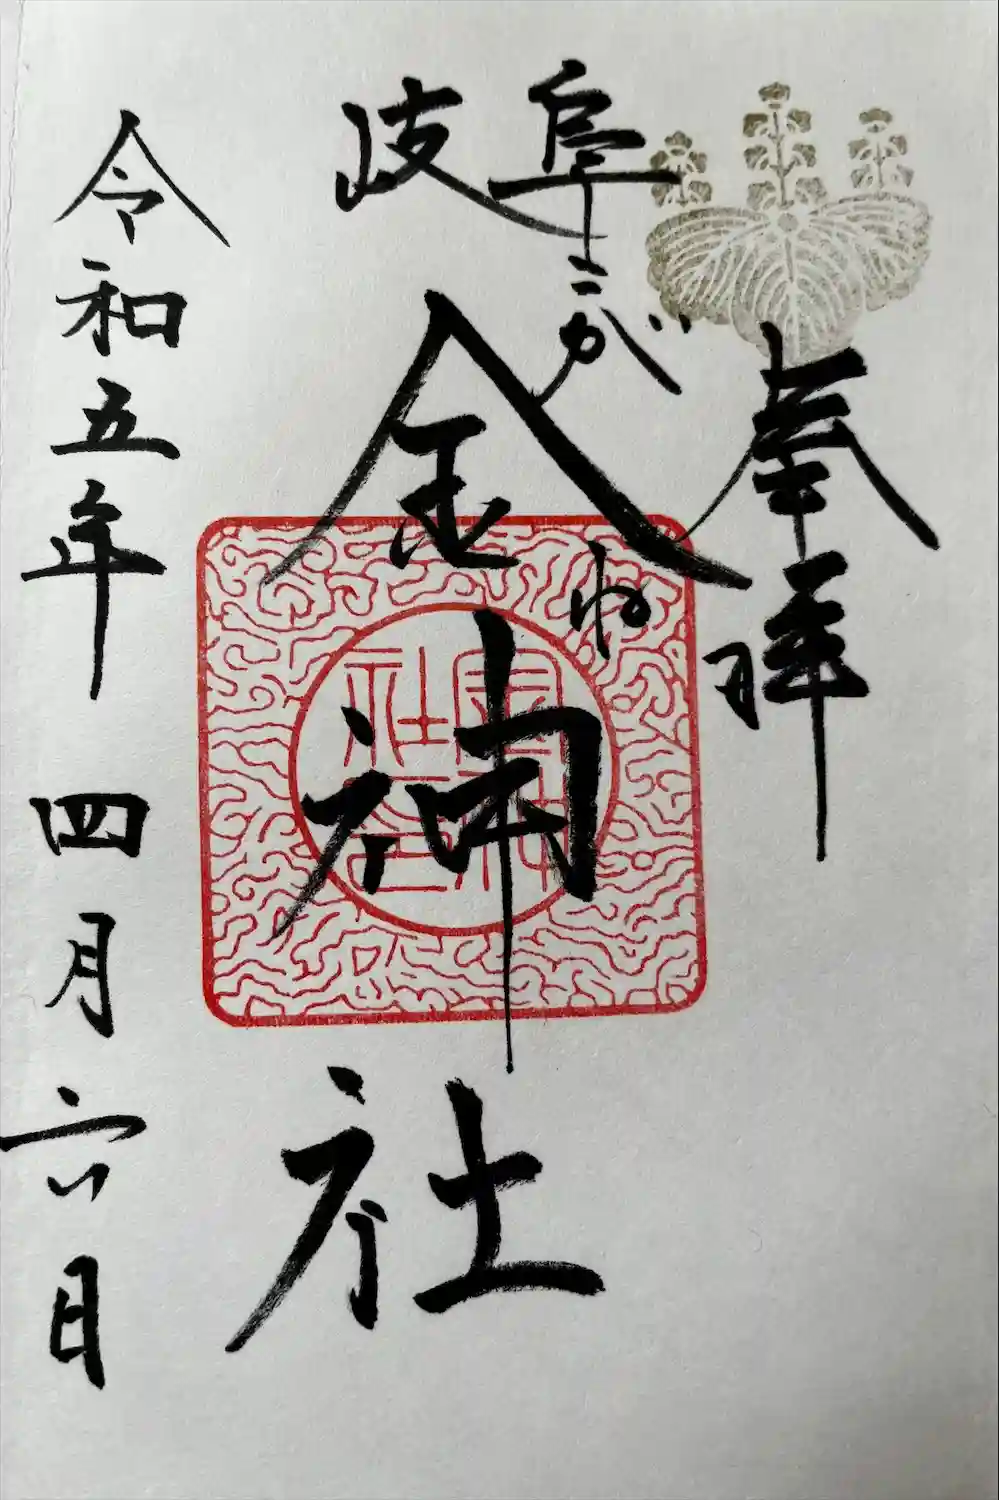 奉拝
岐阜
こがね
金神社
令和五年四月六日